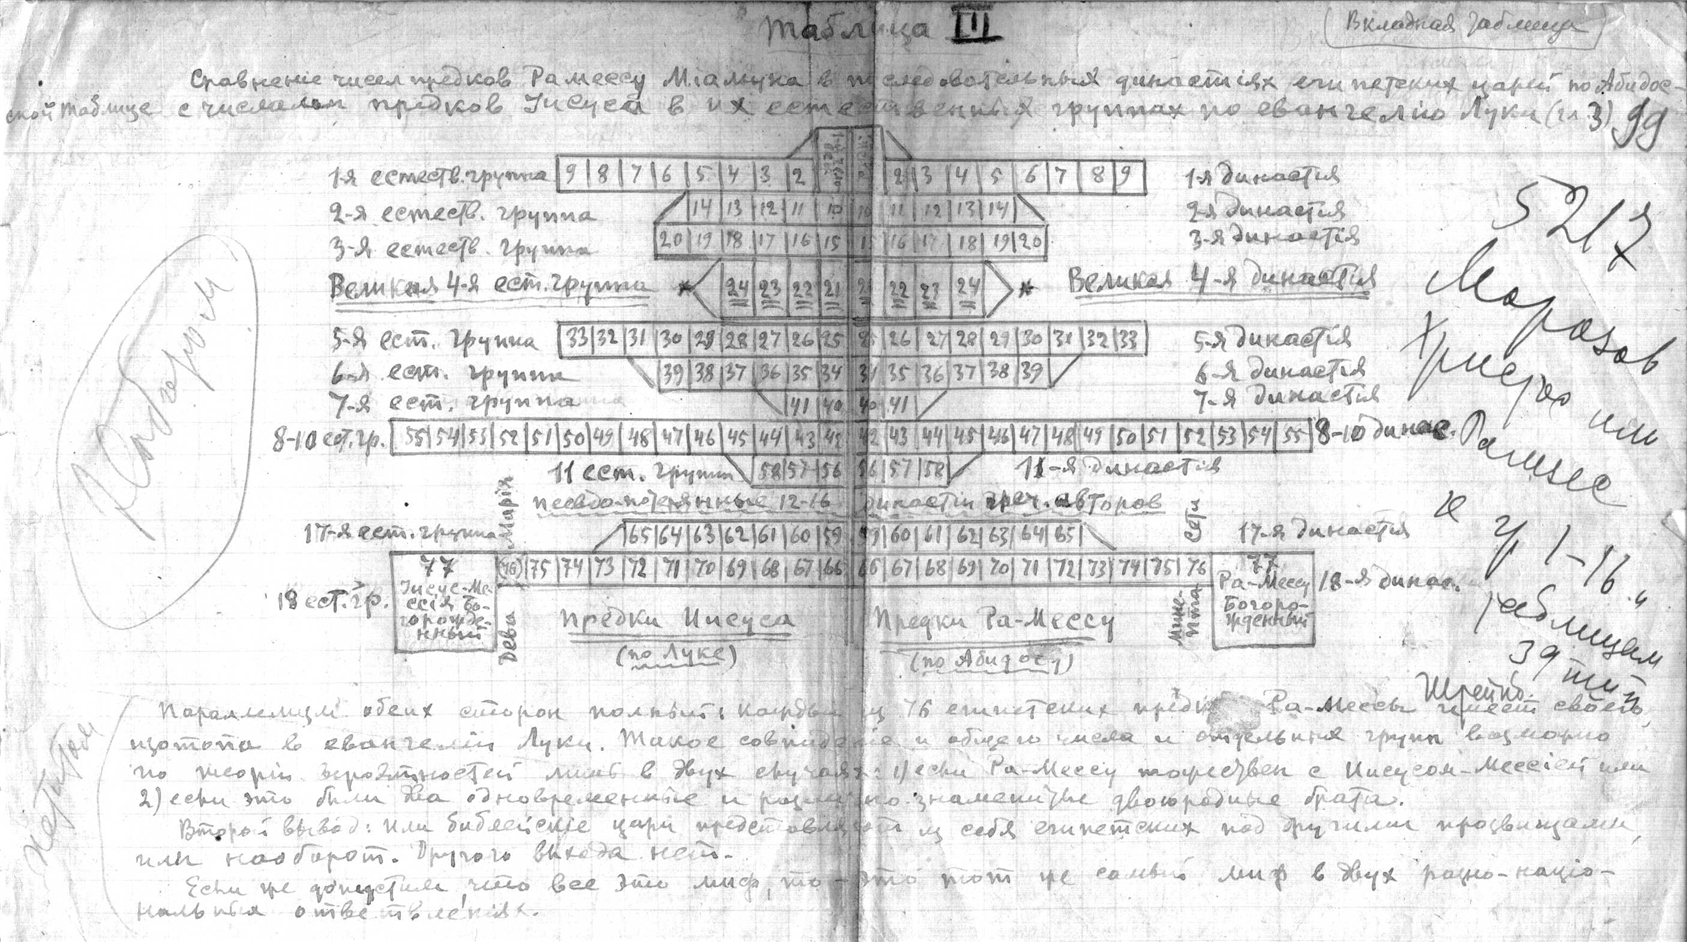 Таблица III
(Вкладная таблица)
Сравненiе чисел предков Рамессу Мiамуна в последовательных династiях египетских царей по Абидос-
ской таблице с числами предков Iисуса в их естественных группах по евангелiю Луки (гл 3)
99
1-я естеств. группа 9 8 7 6 5 4 3 2 2 3 4 5 6 7 8 9 1-я династiя
2-я естеств. группа 14 13 12 11 10 10 11 12 13 14 2-я династiя
3-я естеств. группа 20 19 18 17 16 15 15 16 17 18 19 20 3-я династiя
Великая 4-я ест. группа * 24 23 22 21 21 22 23 24 * Великая 4-я династiя
5-я ест. группа 33 32 31 30 29 28 27 26 25 25 26 27 28 29 30 31 32 33 5-я династiя
6-я ест. группа 39 38 37 36 35 34 34 35 36 37 38 39 6-я династiя
7-я ест. группа 41 40 40 41 7-я династiя
8-10 ест. гр. 55 54 53 52 51 50 49 48 47 46 45 44 43 42 42 43 44 45 46 47 48 49 50 51 52 53 54 55 8-10 динас.
11 ест. группа 58 57 56 56 57 58 11-я династiя
псевдо-потерянные 12-16 династiи греч. авторов
17-я ест. группа 65 64 63 62 61 60 59 59 60 61 62 63 64 65 17-я династiя
18 ест. гр. 77 (76) 75 74 73 72 71 70 69 68 67 66 66 67 68 69 70 71 72 73 74 75 76 77 18-я динас.
Iисус-Ме-
ссiя Бо-
горожде-
нный
Дева Марiя
Предки Иисуса
(по Луке)
Предки Ра-Мессу
(по Абидосу)
Сети
Мине-
пта
Ра-Мессу
Богоро-
жденный
5217
Морозов
Христос или
Рамзес
к гр 1-16
таблицам
39 тип
Параллелизм обеих сторон полный: каждый из 76 египетских предков Ра-Мессы имеет своего
в евангелiи Луки. Такое совпаденiе и общего числа и отдельных групп возможно
по теорiи вероятностей лишь в двух случаях: 1) если Ра-Мессу тождествен с Иисусом-Мессiей или
2) если это были два одновременные и различно знаменитые двоюродные брата.
Второй вывод: или библейскiе цари представляют из себя египетских под другими прозвищами,
или наоборот. Другого выхода нет.
Если же допустим, что все это миф, то - это тот же самый миф в двух разно-нацiо-
нальных ответвленiях.
Набором
петитом